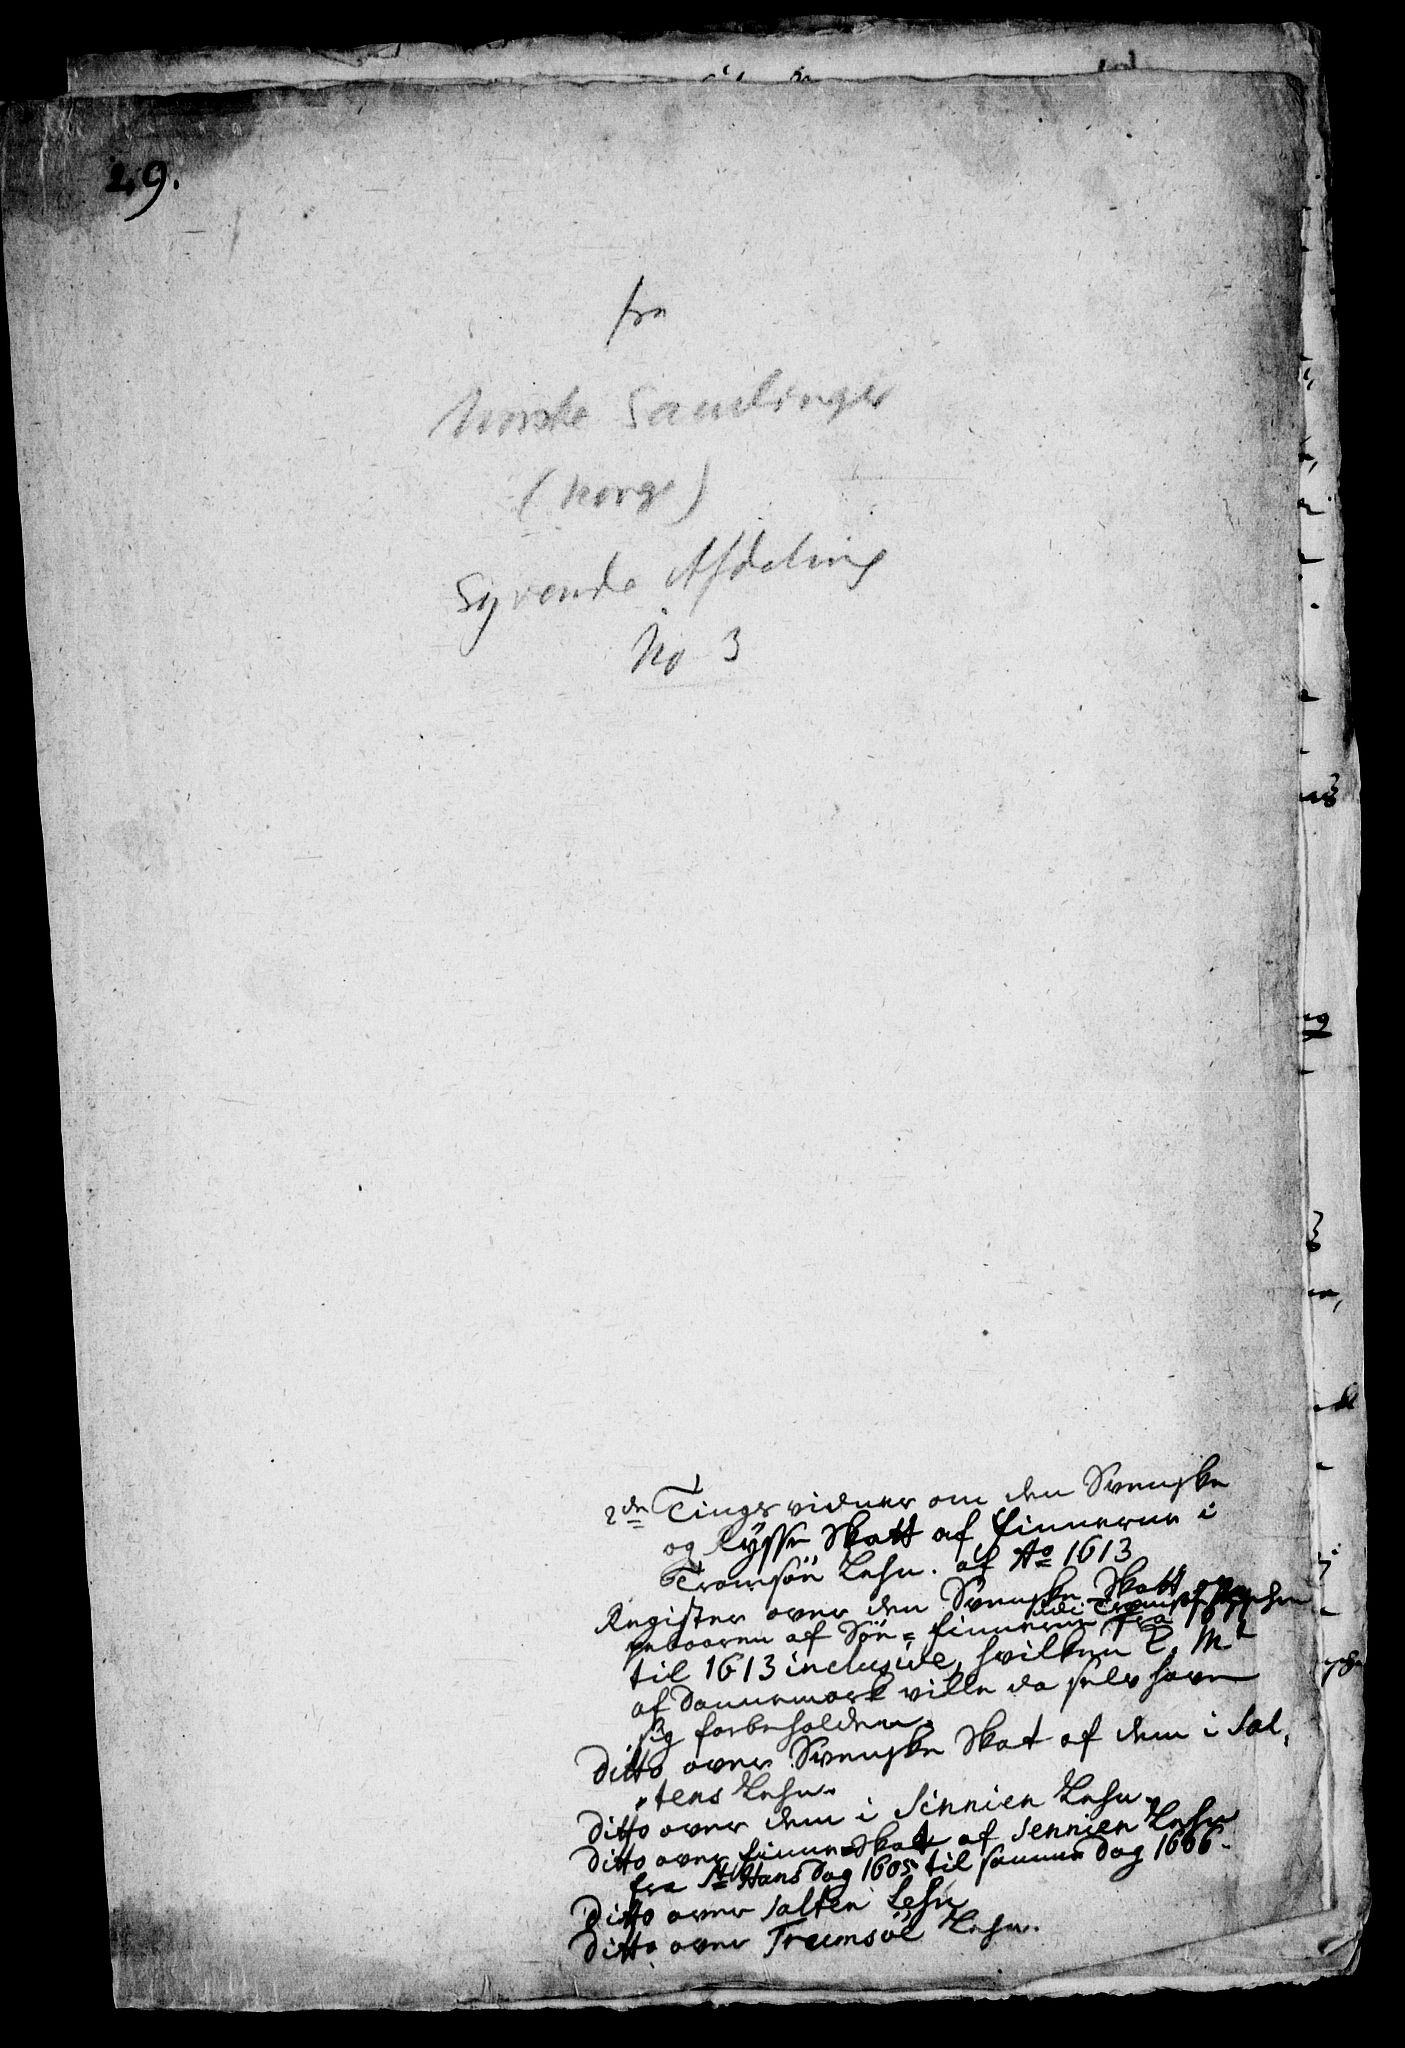 29.
fra
Norske Samlinger
(Norge)
Syvende Afdeling
No 3
2de Tingsvidner om den Svenske
og Rysse Skatt af finnerne i
Tromsöe Lehn. af Ao 1613
Register over den Svenske Skatt
af Söe-finnerne fra
til 1613 inclusive, hvilken K. Mt
af Dannemark ville da selv have
sig forbeholden.
Ditto over Svenske Skat af dem i Sal,
tens Lehn.
Ditto over dem i Sennien Lehn.
Ditto over finneSkatt af Sennien Lehn
fra St Hans Dag 1605 til samme Dag 1606.
Ditto over Salten Lehn
Ditto over Trumsöe Lehn.